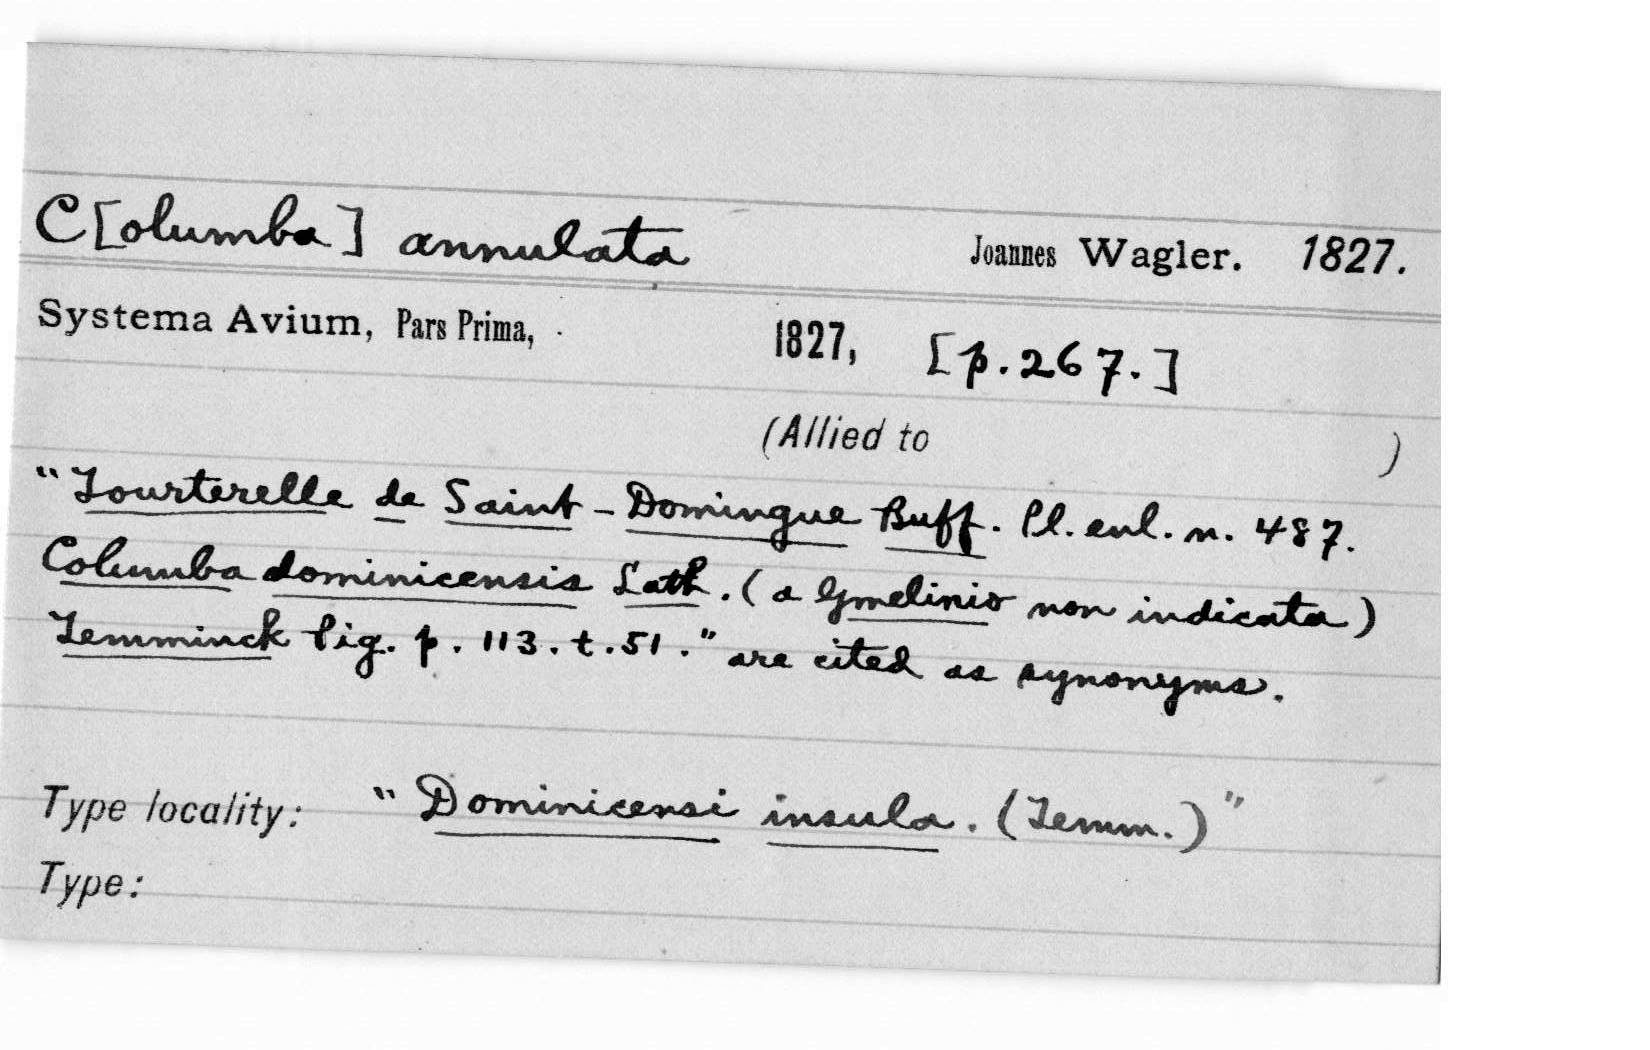 C[olumba] annulata Joannes Wagler. 1827.
Systema Avium, Pars Prima, 1827, [p. 267.]
(Allied to )
"Tourterelle de Saint-Domingue Buff. Pl. enl. n. 487.
Columba dominicensis Lath. (a Gmelinio non indicata)
Temminck Pig. p. 113. t. 51." are cited as synonyms.
Type locality: "Dominicensi insula. (Temm.)"
Type: